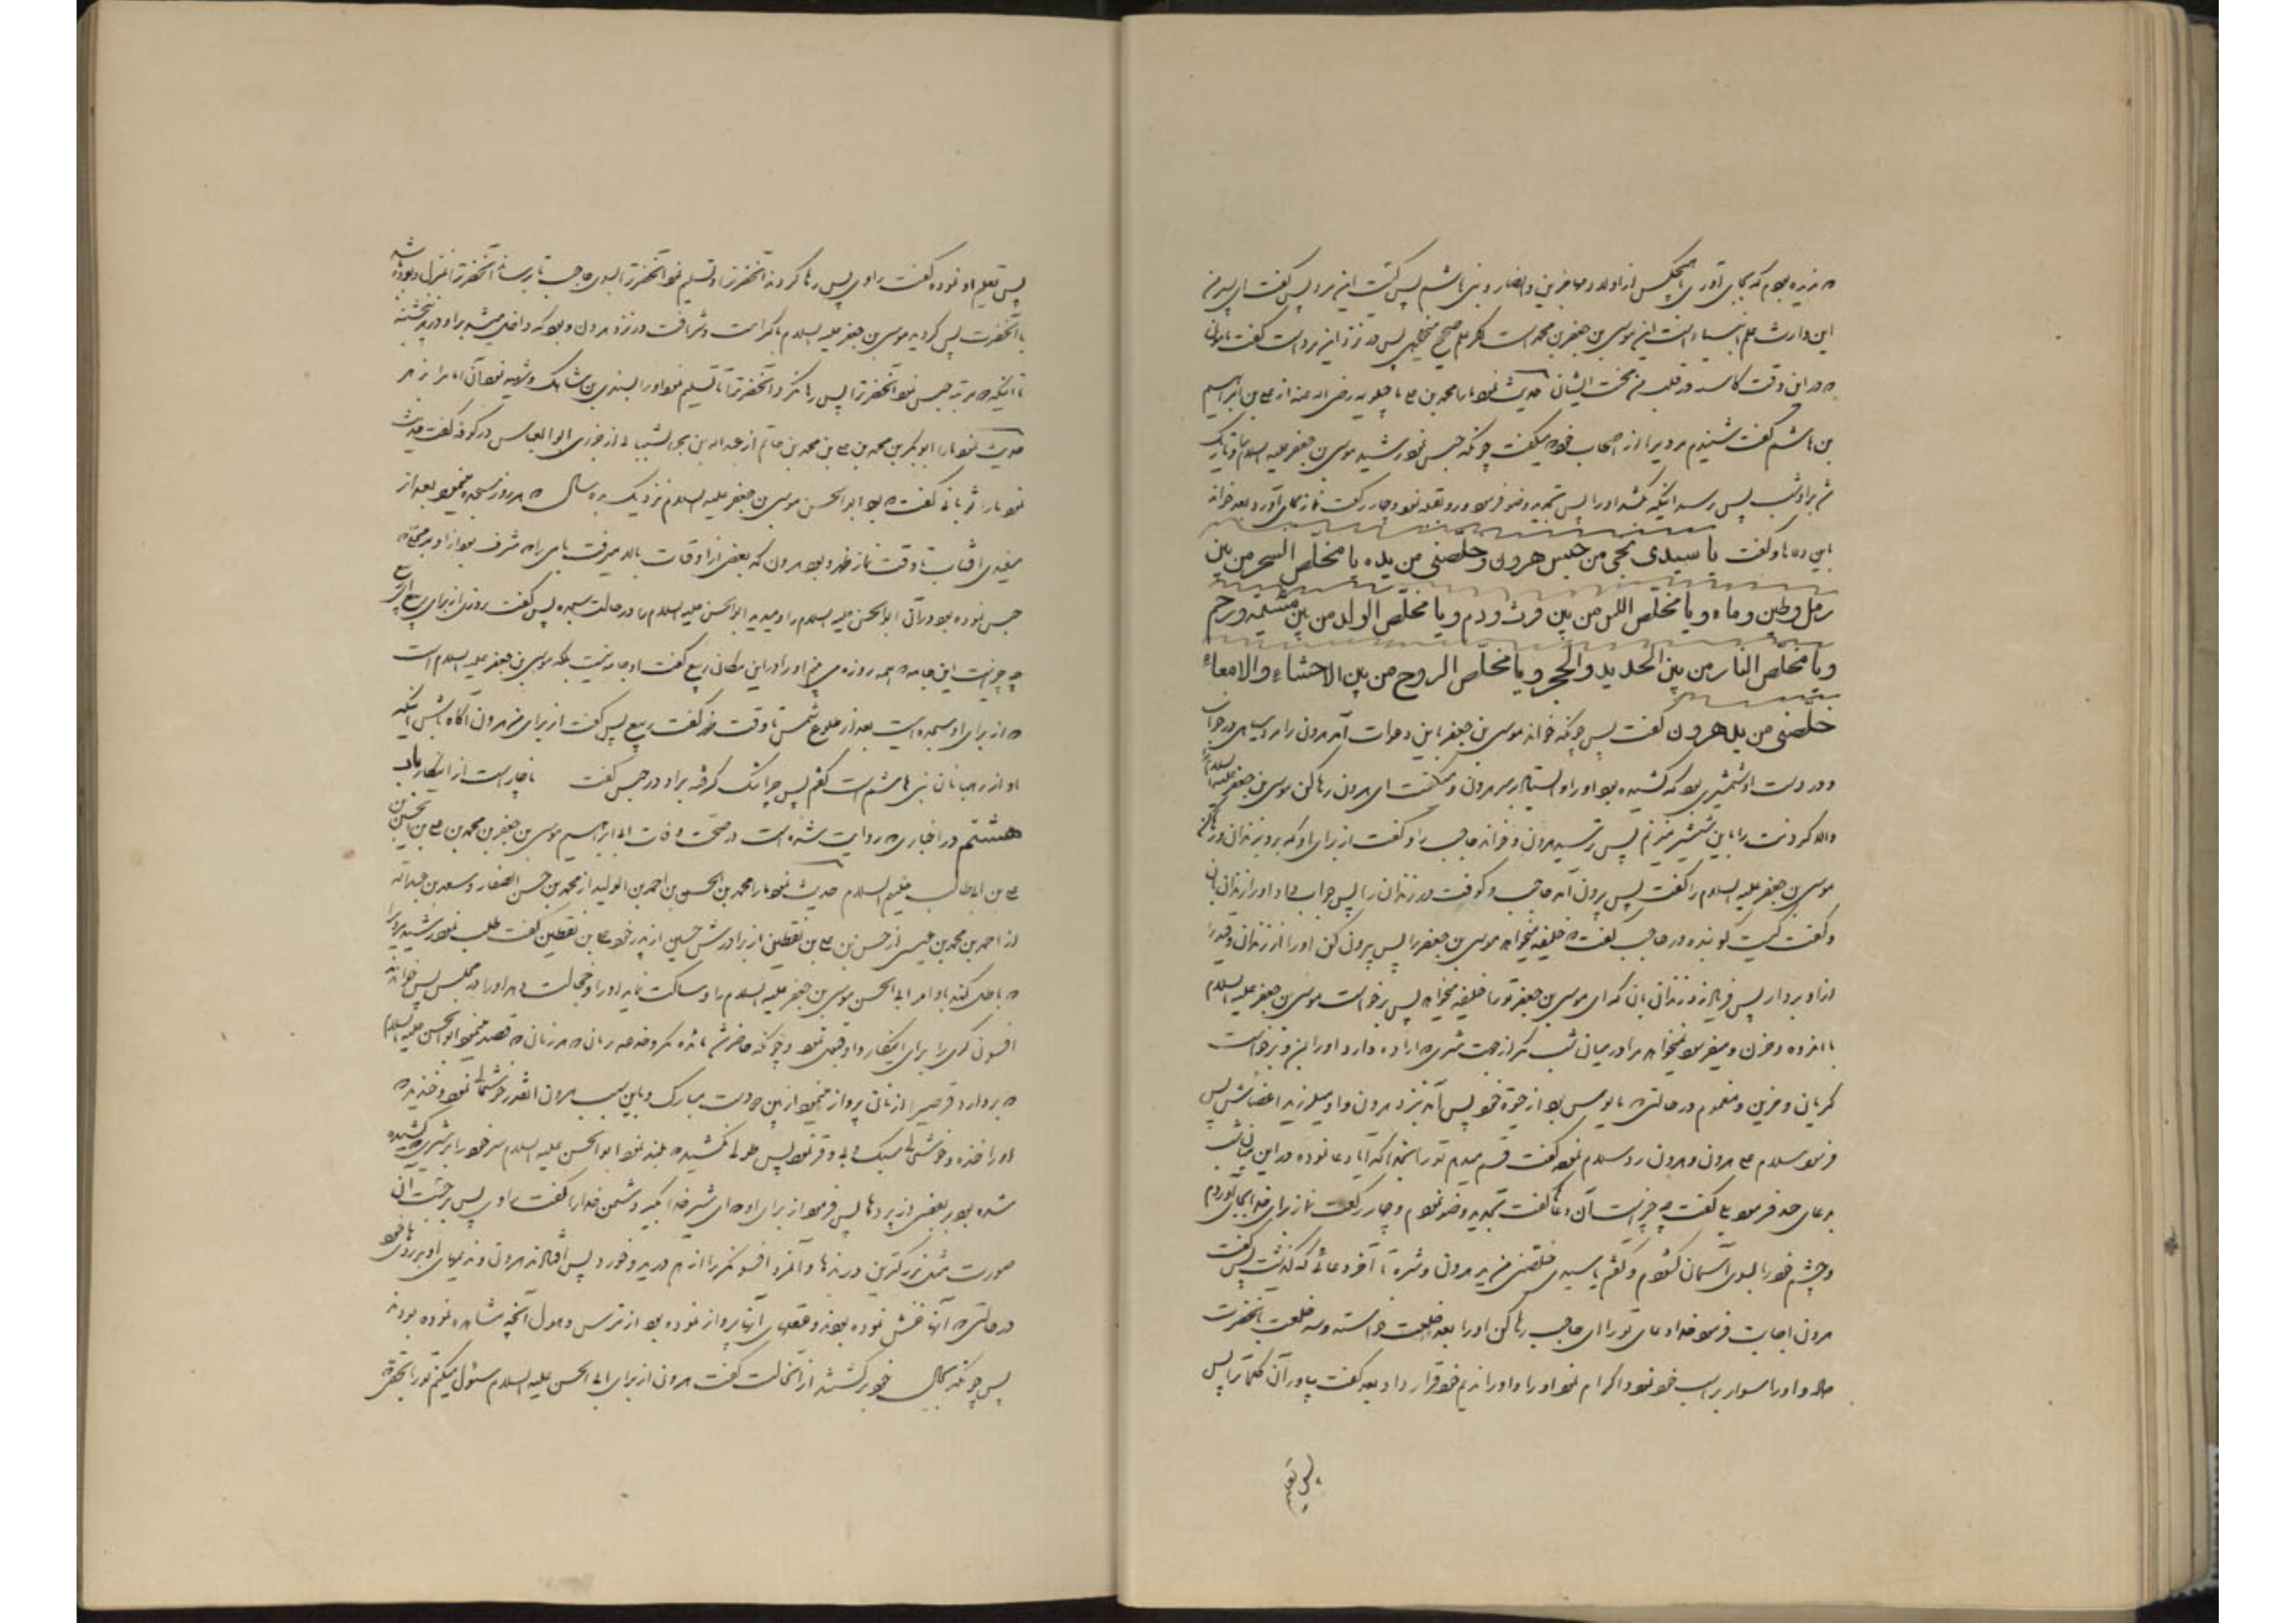 که ندیده بودم که بجای آوری با هیچکس از اولاد و مهاجرین و انصار و بنی هاشم پس کیست این مرد پس گفت ای پسر من
این وارث علم انبیاء است این موسی بن جعفر بن محمد است اگر علم صحیح میخواهی پس در نزد این مرد است گفت مامون
که در این وقت کاشته شد در قلب من محبت ایشان حدیث نمود ما را محمد بن علی ماجیلویه رضی الله عنه از علی بن ابراهیم
بن هاشم گفت شنیدم مردی را از اصحاب خود میگفت چونکه حبس نمود رشید موسی بن جعفر علیه السلام را و تاریک
شد بر او شب پس ترسید اینکه بکشد او را پس تجدید وضو فرمود و رو بقبله نمود و چهار رکعت نماز بجای آورد و بعد خواند
این دعا و گفت یا سیدی نجنی من حبس هرون و خلصنی من یده یا مخلص الشجر من بین
رمل وطین وماء ویا مخلص اللبن من بین فرث ودم ویا مخلص الولد من بین مشیمه ورحم
ویا مخلص النار من بین الحدید والحجر ویا مخلص الروح من بین الاحشاء والامعاء
خلصنی من ید هرون گفت پس چونکه خواند موسی بن جعفر باین دعوات آمد هرون را مرد سیاهی در خواب
و در دست او شمشیری بود که کشیده بود او را و ایستاد بر سر هرون و میگفت ای هرون رها کن موسی بن جعفر علیه السلام را
والا گردنت را باین شمشیر میزنم پس ترسید هرون و خواند حاجب را و گفت از برای او که برو بزندان و رها کن
موسی بن جعفر علیه السلام را گفت پس بیرون آمد حاجب و کوفت در زندان را پس جواب داد او را زندان بان
و گفت کیست کوبنده در حاجب گفت که خلیفه میخواهد موسی بن جعفر را پس بیرون کن او را از زندان و قید را
از او بردار پس فریاد زد زندان بان که ای موسی بن جعفر تو را خلیفه میخواهد پس برخواست موسی بن جعفر علیه السلام
با اندوه و حزن و میفرمود نمیخواهد مرا در میان شب مگر از جهت شری که اراده دارد او را بمن و برخواست
گریان و حزین و مغموم در حالتی که مایوس بود از حیوة خود پس آمد بنزد هرون و او میلرزید اعضایش پس
فرمود سلام علی هرون و هرون رد سلام نمود گفت قسم میدهم تو را بخدا که آیا دعا نموده در این میان شب
بدعای چند فرمود بلی گفت چه چیز است آن دعا گفت تجدید وضو نمودم و چهار رکعت نماز برای خدا بجای آوردم
و چشم خود را بسوی آسمان گشودم و گفتم یا سیدی خلصنی من ید هرون و شره تا آخر دعائی که گذشت پس گفت
هرون اجابت فرمود خدا دعای تو را ای حاجب رها کن او را بعد خلعت خواسته و سه خلعت بانحضرت
داد و او را سوار بر اسب خود نمود و اکرام نمود او را و او را ندیم خود قرار داد و بعد گفت بیاور آن کلمات را پس
پس تعلیم
پس تعلیم او نموده گفت راوی پس رها کردند آنحضرت را و تسلیم نمود آنحضرت را بسوی حاجب تا برساند آنحضرت را بمنزل و بوده باشد
با آنحضرت پس گردید موسی بن جعفر علیه السلام با کرامت و شرافت در نزد هرون و بود که داخل میشد بر او در هر پنجشنبه
تا اینکه که مرتبه حبس نمود آنحضرت را پس رها نکرد آنحضرت را تا تسلیم نمود او را بسندی بن شاهک و شهید نمود آن امام را از زهر
حدیث نمود ما را ابوبکر بن محمد بن علی بن محمد بن حاتم از عبدالله بن بحر الشیبانی از خرزی ابوالعباس در کوفه گفت حدیث
نمود ما را ثوبانی گفت که بود ابوالحسن موسی بن جعفر علیه السلام نزدیک به ده سال که هر روز سجده مینمود بعد از
سفیدی آفتاب تا وقت نماز ظهر و بود هرون که بعضی از اوقات بالا میرفت بامی را که مشرف بود از او بر محلی که
حبس نموده بود در آن ابوالحسن علیه السلام را و میدید ابوالحسن علیه السلام را در حالت سجده پس گفت روزی از برای ربیع ای ربیع
چه چیز است این جامه که همه روزه می بینم او را در این مکان ربیع گفت او جامه نیست بلکه موسی بن جعفر علیه السلام است
که از برای او سجده ایست بعد از طلوع شمس تا وقت ظهر گفت ربیع پس گفت از برای من هرون آگاه باش اینکه
او از رهبانان بنی هاشم است گفتم پس چرا تنگ گرفته بر او در حبس گفت ناچار است از اینکار باب
هشتم در اخباری که روایت شده است در صحت وفات ابی ابراهیم موسی بن جعفر بن محمد بن علی بن الحسین بن
علی بن ابیطالب علیهم السلام حدیث نمود ما را محمد بن الحسن بن احمد بن الولید از محمد بن حسن الصفار و سعد بن عبدالله
از احمد بن محمد بن عیسی از حسن بن علی بن یقطین از برادرش حسین از پدر خود علی بن یقطین گفت طلب نمود رشید مردی را
که باطل کند باو امر ابی الحسن موسی بن جعفر علیه السلام را و ساکت نماید او را و خجالت دهد او را در مجلس پس خواندند
افسون گری را برای اینکار و او قبول نمود و چونکه حاضر شد مائده مکر و خدعه بر نان که هر زمان که قصد مینمود ابوالحسن علیه السلام
که بردارد قرصی را از نان پرواز مینمود از پیش دست مبارک و باین سبب هرون آنقدر خوشحالی نمود و خندید که
او را خنده و خوشحالی سبک و بی وقر نمود پس طولی نکشید که بلند نمود ابوالحسن علیه السلام سر خود را بر شیری که کشیده
شده بود بر بعضی از پرده ها پس فرمود از برای او که ای شیر خدا بگیر دشمن خدا را گفت راوی پس برجست آن
صورت مثل بزرگترین درنده ها و آنمرد افسونگر را از هم درید و خورد پس افتادند هرون و ندیمهای او بر روهای خود
در حالتی که آنها غش نموده بودند و عقلهای آنها پرواز نموده بود از ترس و هول آنچه مشاهده نموده بودند
پس چونکه بحال خود برگشتند از آنحالت گفت هرون از برای ابی الحسن علیه السلام سئوال میکنم تو را بحقی که